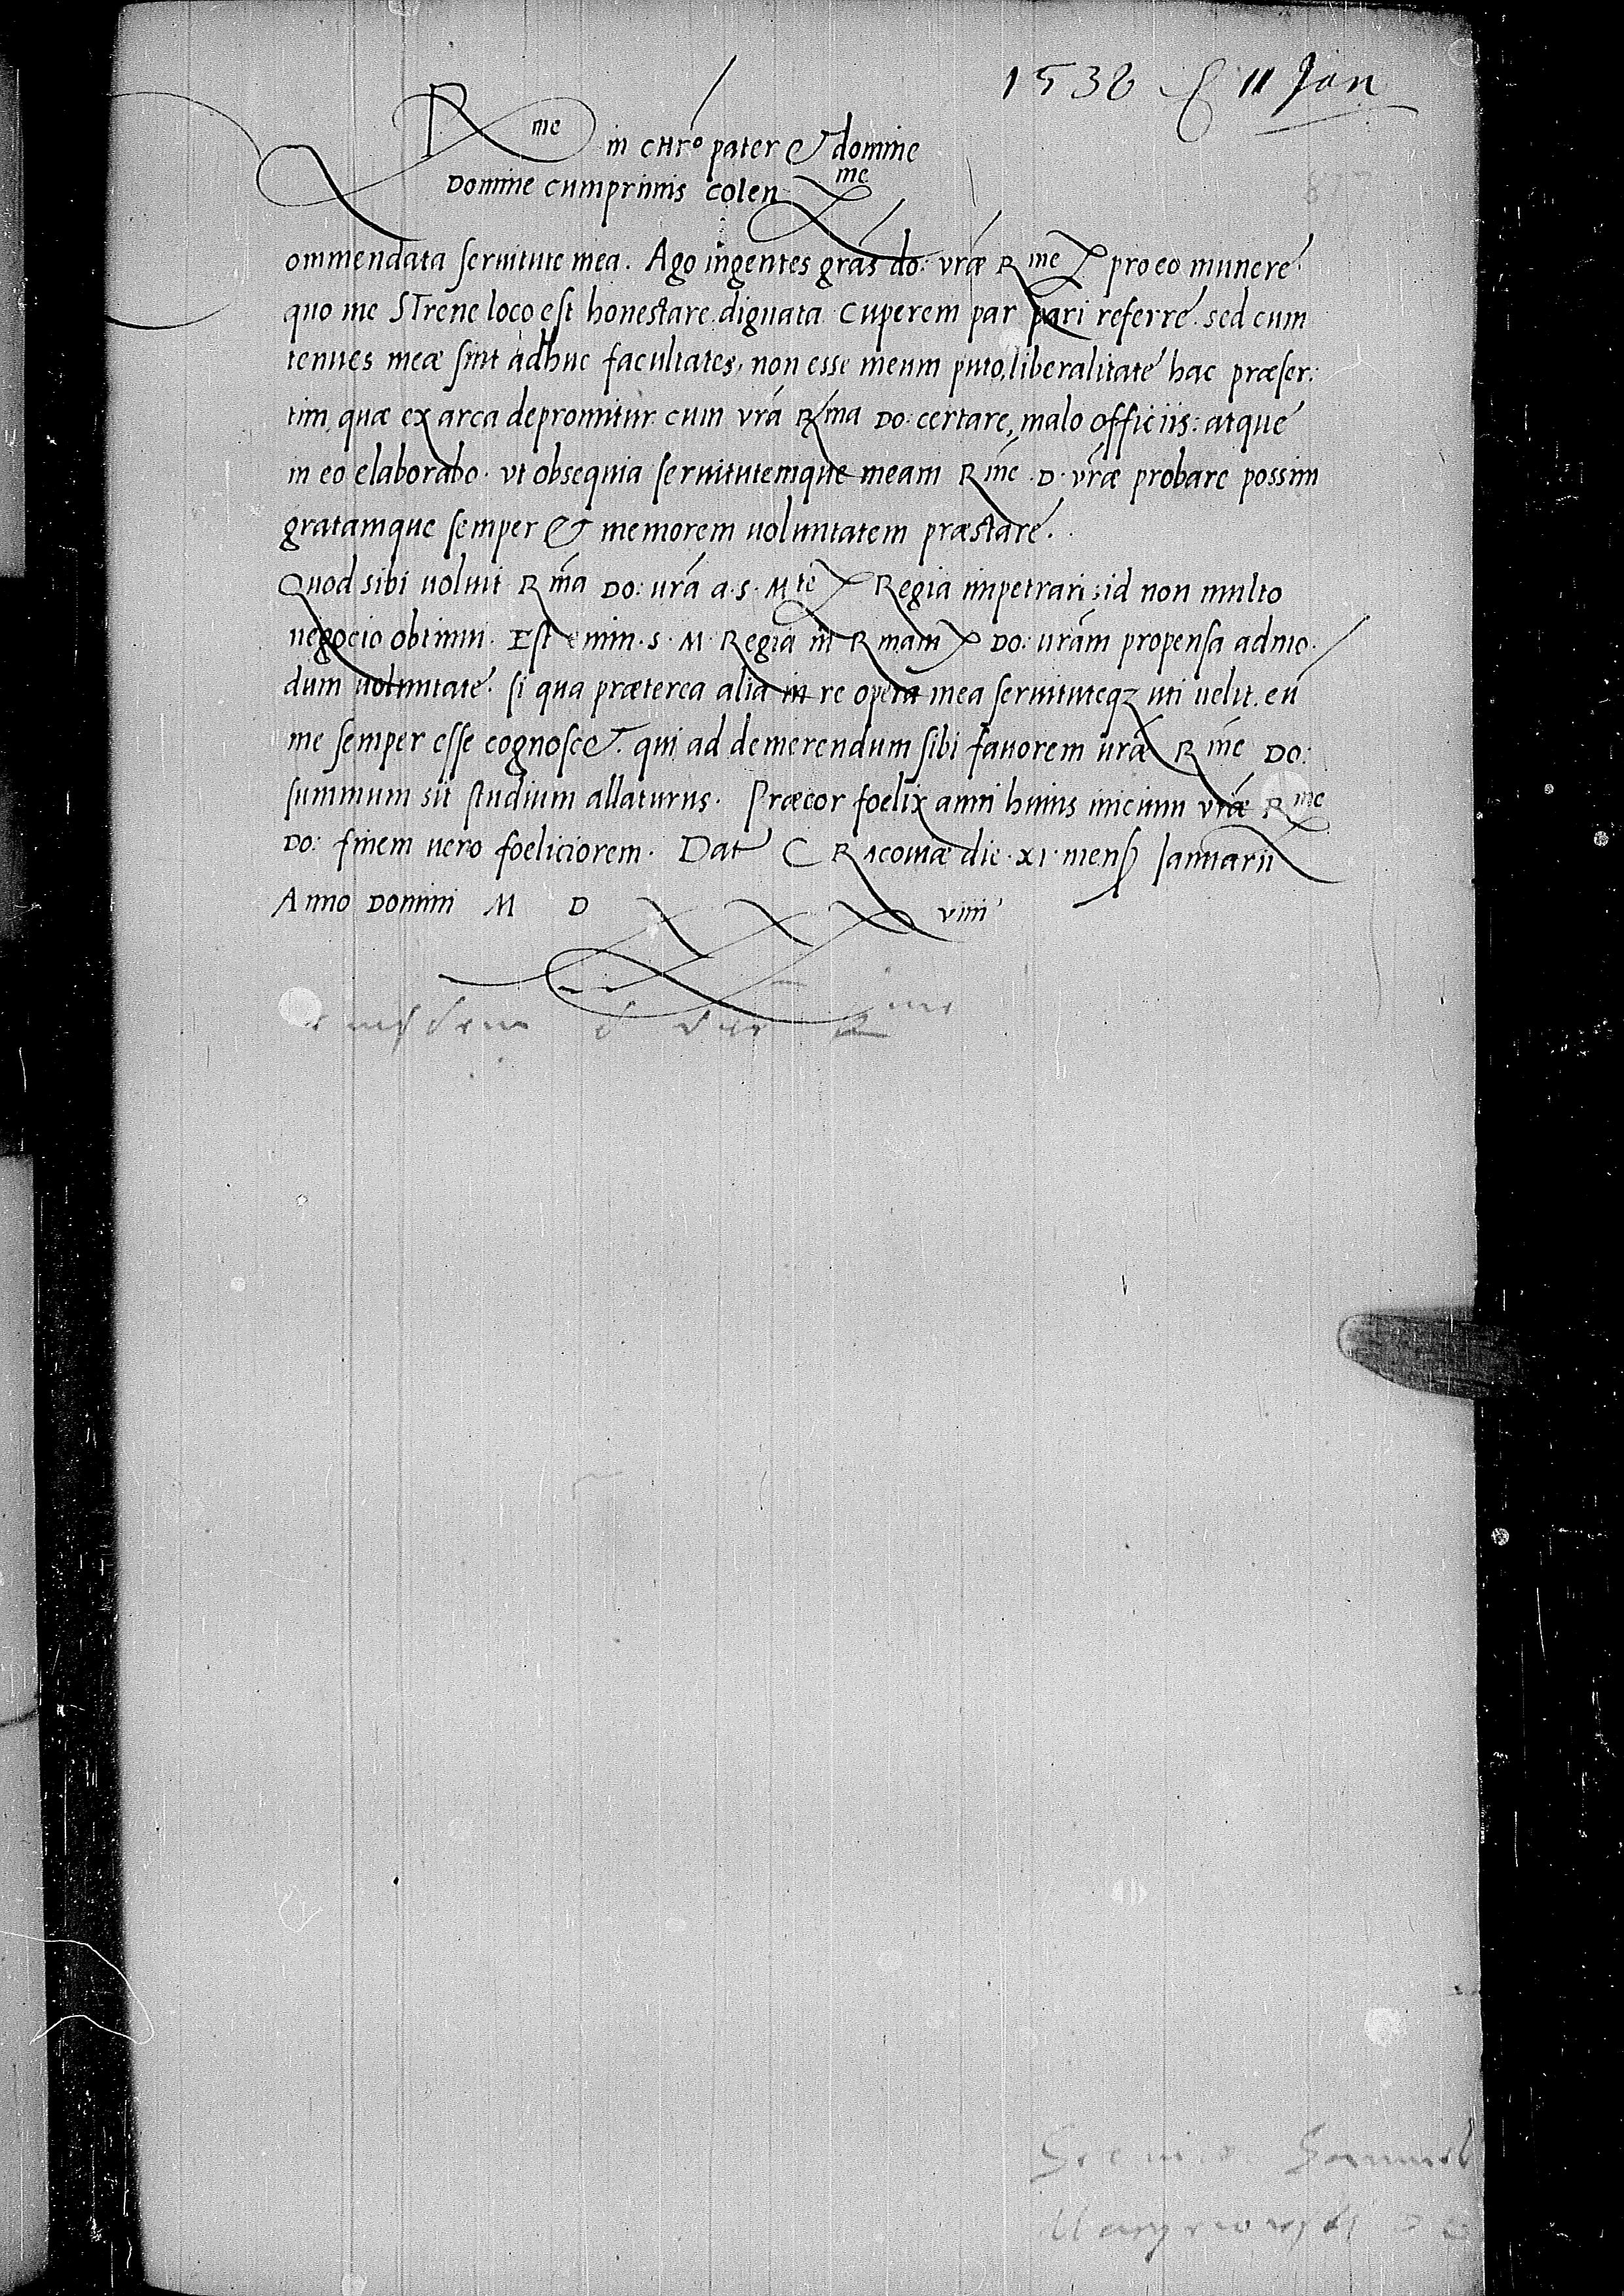 1538 11 Jan
R me in CHro pater & domine
Domine cumprimis colen me
Commendata seruitute mea. Ago ingentes gras do: vrae R me pro eo munere
quo me STrene loco est honestare dignata Cuperem par pari referre. sed cum
tenues meae sint adHuc facultates, non esse meum puto, liberalitate hac praeser:
tim, quae ex arca depromitur cum vra R ma Do: certare, malo officiis: atque
in eo elaborabo. vt obsequia seruitutemque meam R me .D. vrae probare possim
gratamque semper & memorem uoluntatem praestare.
Quod sibi uoluit R ma Do: ura a.S.M te Regia impetrari: id non multo
negocio obtinui. Est enim .S. M. Regia in R mam Do: uram propensa admo.
dum uoluntate. si qua praeterea alia in re opera mea seruituteqz uti uelit. eu
me semper esse cognoscet. qui ad demerendum sibi fauorem urae R me Do:
summum sit studium allaturus. Praecor foelix anni huius inicium vrae R me
Do: finem uero foeliciorem. Dat CRAcouiae die .XI. mens Januarii
Anno Domini M D XXX viii
Samuel